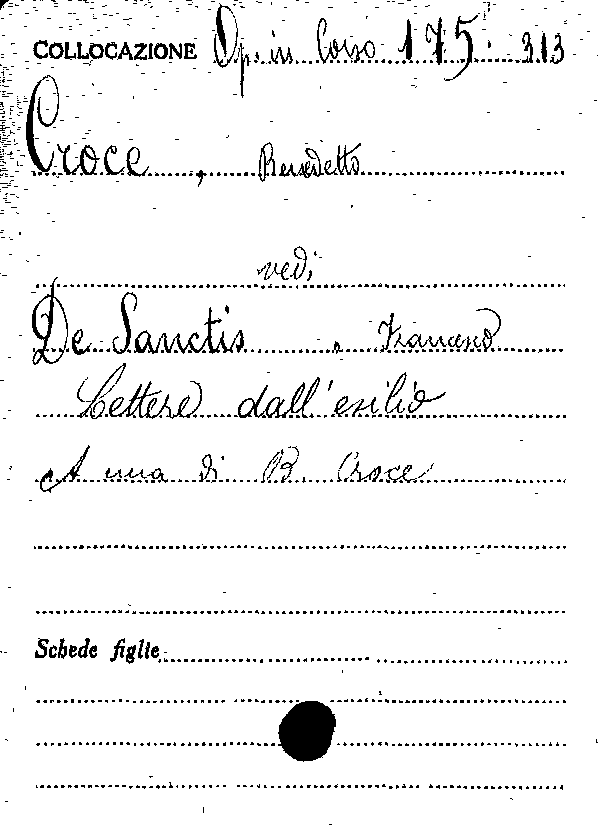 COLLOCAZIONE Op. in Corso 175. 313
Croce, Benedetto
vedi
De Sanctis, Francesco
Lettere dall'esilio
A cura di B. Croce
Schede figlie